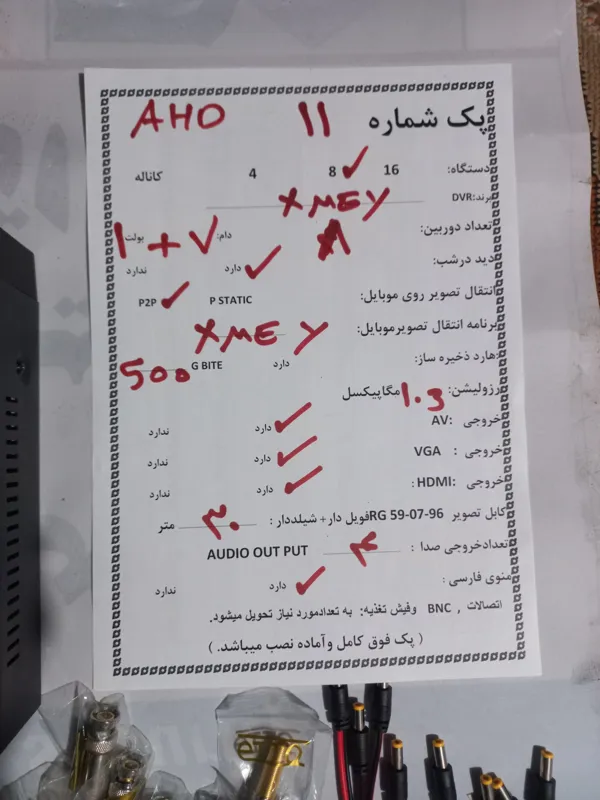 پک شماره 11 AHD
دستگاه: 16 8 4 کاناله
برند:DVR XMEY
تعداد دوربین: 8 دام: 7 + بولت: 1
دید درشب: دارد ندارد
انتقال تصویر روی موبایل: P STATIC P2P
برنامه انتقال تصویرموبایل: XMEY
هارد ذخیره ساز: دارد G BITE 500
رزولیشن: 1.3 مگاپیکسل
خروجی :AV دارد ندارد
خروجی : VGA دارد ندارد
خروجی :HDMI: دارد ندارد
کابل تصویر RG 59-07-96فویل دار+ شیلددار : ۳۰ متر
تعدادخروجی صدا : ۴ AUDIO OUT PUT
منوی فارسی : دارد ندارد
اتصالات , BNC وفیش تغذیه: به تعدادمورد نیاز تحویل میشود.
( پک فوق کامل وآماده نصب میباشد. )